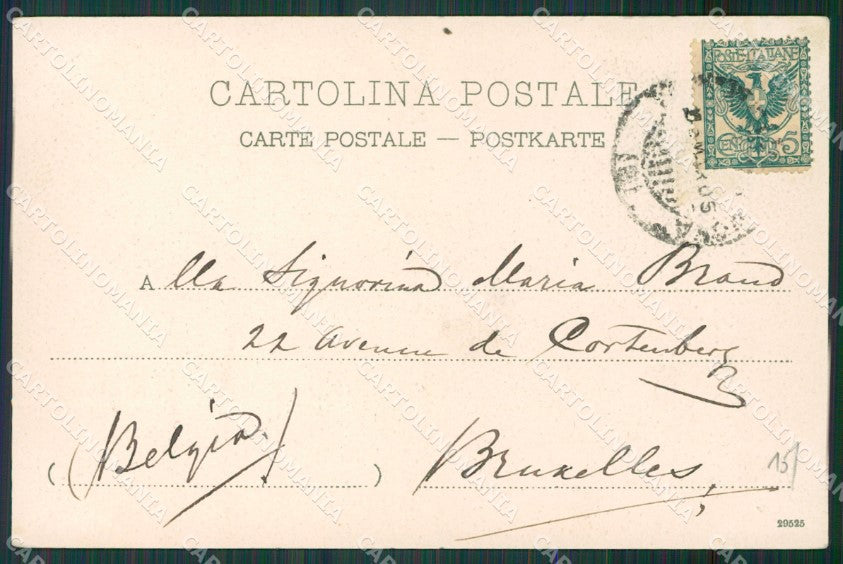 CARTOLINA POSTALE
CARTE POSTALE — POSTKARTE
POSTE ITALIANE
CENT. 5
Alla Signorina Maria Brand
22 Avenue de Cortenberg
(Belgio) Bruxelles,
15
29525
CARTOLINOMANIA